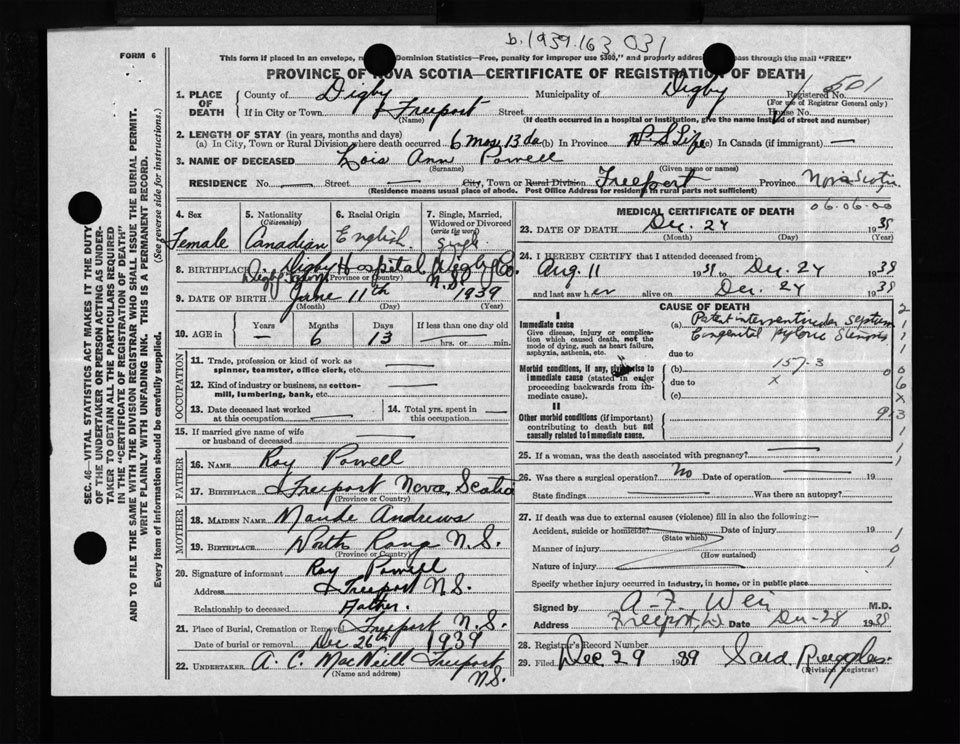 b. 1939.163 031
FORM 6
This form if placed in an envelope, Dominion Statistics—Free, penalty for improper use $300," and properly pass through the mail "FREE"
PROVINCE OF NOVA SCOTIA—CERTIFICATE OF REGISTRATION OF DEATH
1. PLACE OF DEATH
County of Digby Municipality of Digby Registered No.
(For use of Registrar General only)
If in City or Town Freeport Street House No.
(Name) (If death occurred in a hospital or institution, give the name instead of street and number)
2. LENGTH OF STAY (in years, months and days)
(a) In City, Town or Rural Division where death occurred 6 mos 13 da (b) In Province N S Life (c) In Canada (if immigrant) —
3. NAME OF DECEASED Lois Ann Powell
(Surname) (Given name or names)
RESIDENCE No. — Street — City, Town or Rural Division Freeport Province Nova Scotia
(Residence means usual place of abode. Post Office Address for residents in rural parts not sufficient)
4. Sex
Female
5. Nationality
(Citizenship)
Canadian
6. Racial Origin
English.
7. Single, Married, Widowed or Divorced
(write the word)
Single
8. BIRTHPLACE Digby Hospital Digby Co.
(Province or Country) N.S.
9. DATE OF BIRTH June 11th 1939
(Month) (Day) (Year)
10. AGE in
Years Months Days If less than one day old
— 6 13 hrs. or min.
OCCUPATION
11. Trade, profession or kind of work as spinner, teamster, office clerk, etc. —
12. Kind of industry or business, as cotton-mill, lumbering, bank, etc. —
13. Date deceased last worked at this occupation —
14. Total yrs. spent in this occupation —
15. If married give name of wife or husband of deceased —
FATHER
16. NAME Roy Powell
17. BIRTHPLACE Freeport Nova Scotia
(Province or Country)
MOTHER
18. MAIDEN NAME Maude Andrews
19. BIRTHPLACE North Range N.S.
(Province or Country)
20. Signature of informant Roy Powell
Address Freeport N.S.
Relationship to deceased Father.
21. Place of Burial, Cremation or Removal Freeport N.S.
Date of burial or removal Dec 26th 1939
22. UNDERTAKER A. C. MacNeill Freeport
(Name and address) N.S.
06.06.00
MEDICAL CERTIFICATE OF DEATH
23. DATE OF DEATH Dec. 24 1939
(Month) (Day) (Year)
24. I HEREBY CERTIFY that I attended deceased from:
Aug. 11 1939 to Dec. 24 1939
and last saw her alive on Dec. 24 1939
CAUSE OF DEATH
I
Immediate cause
Give disease, injury or complication which caused death, not the mode of dying, such as heart failure, asphyxia, asthenia, etc.
(a) Patent interventricular septum
Congenital Pyloric Stenosis
due to
Morbid conditions, if any, giving rise to immediate cause (stated in order proceeding backwards from immediate cause).
(b) 157-3
due to x
(c)
II
Other morbid conditions (if important) contributing to death but not causally related to immediate cause.
25. If a woman, was the death associated with pregnancy? —
26. Was there a surgical operation? No Date of operation — 19
State findings — Was there an autopsy?
27. If death was due to external causes (violence) fill in also the following:—
Accident, suicide or homicide? Date of injury 19
(State which)
Manner of injury
(How sustained)
Nature of injury
Specify whether injury occurred in industry, in home, or in public place
Signed by A. F. Weir M.D.
Address Freeport, N.S. Date Dec-28 1939
28. Registrar's Record Number
29. Filed Dec 29 1939
(Division Registrar)
SEC. 46—VITAL STATISTICS ACT MAKES IT THE DUTY OF THE UNDERTAKER OR PERSON ACTING AS UNDERTAKER TO OBTAIN ALL THE PARTICULARS REQUIRED IN THE "CERTIFICATE OF REGISTRATION OF DEATH" AND TO FILE THE SAME WITH THE DIVISION REGISTRAR WHO SHALL ISSUE THE BURIAL PERMIT.
WRITE PLAINLY WITH UNFADING INK. THIS IS A PERMANENT RECORD.
Every item of information should be carefully supplied. (See reverse side for instructions.)